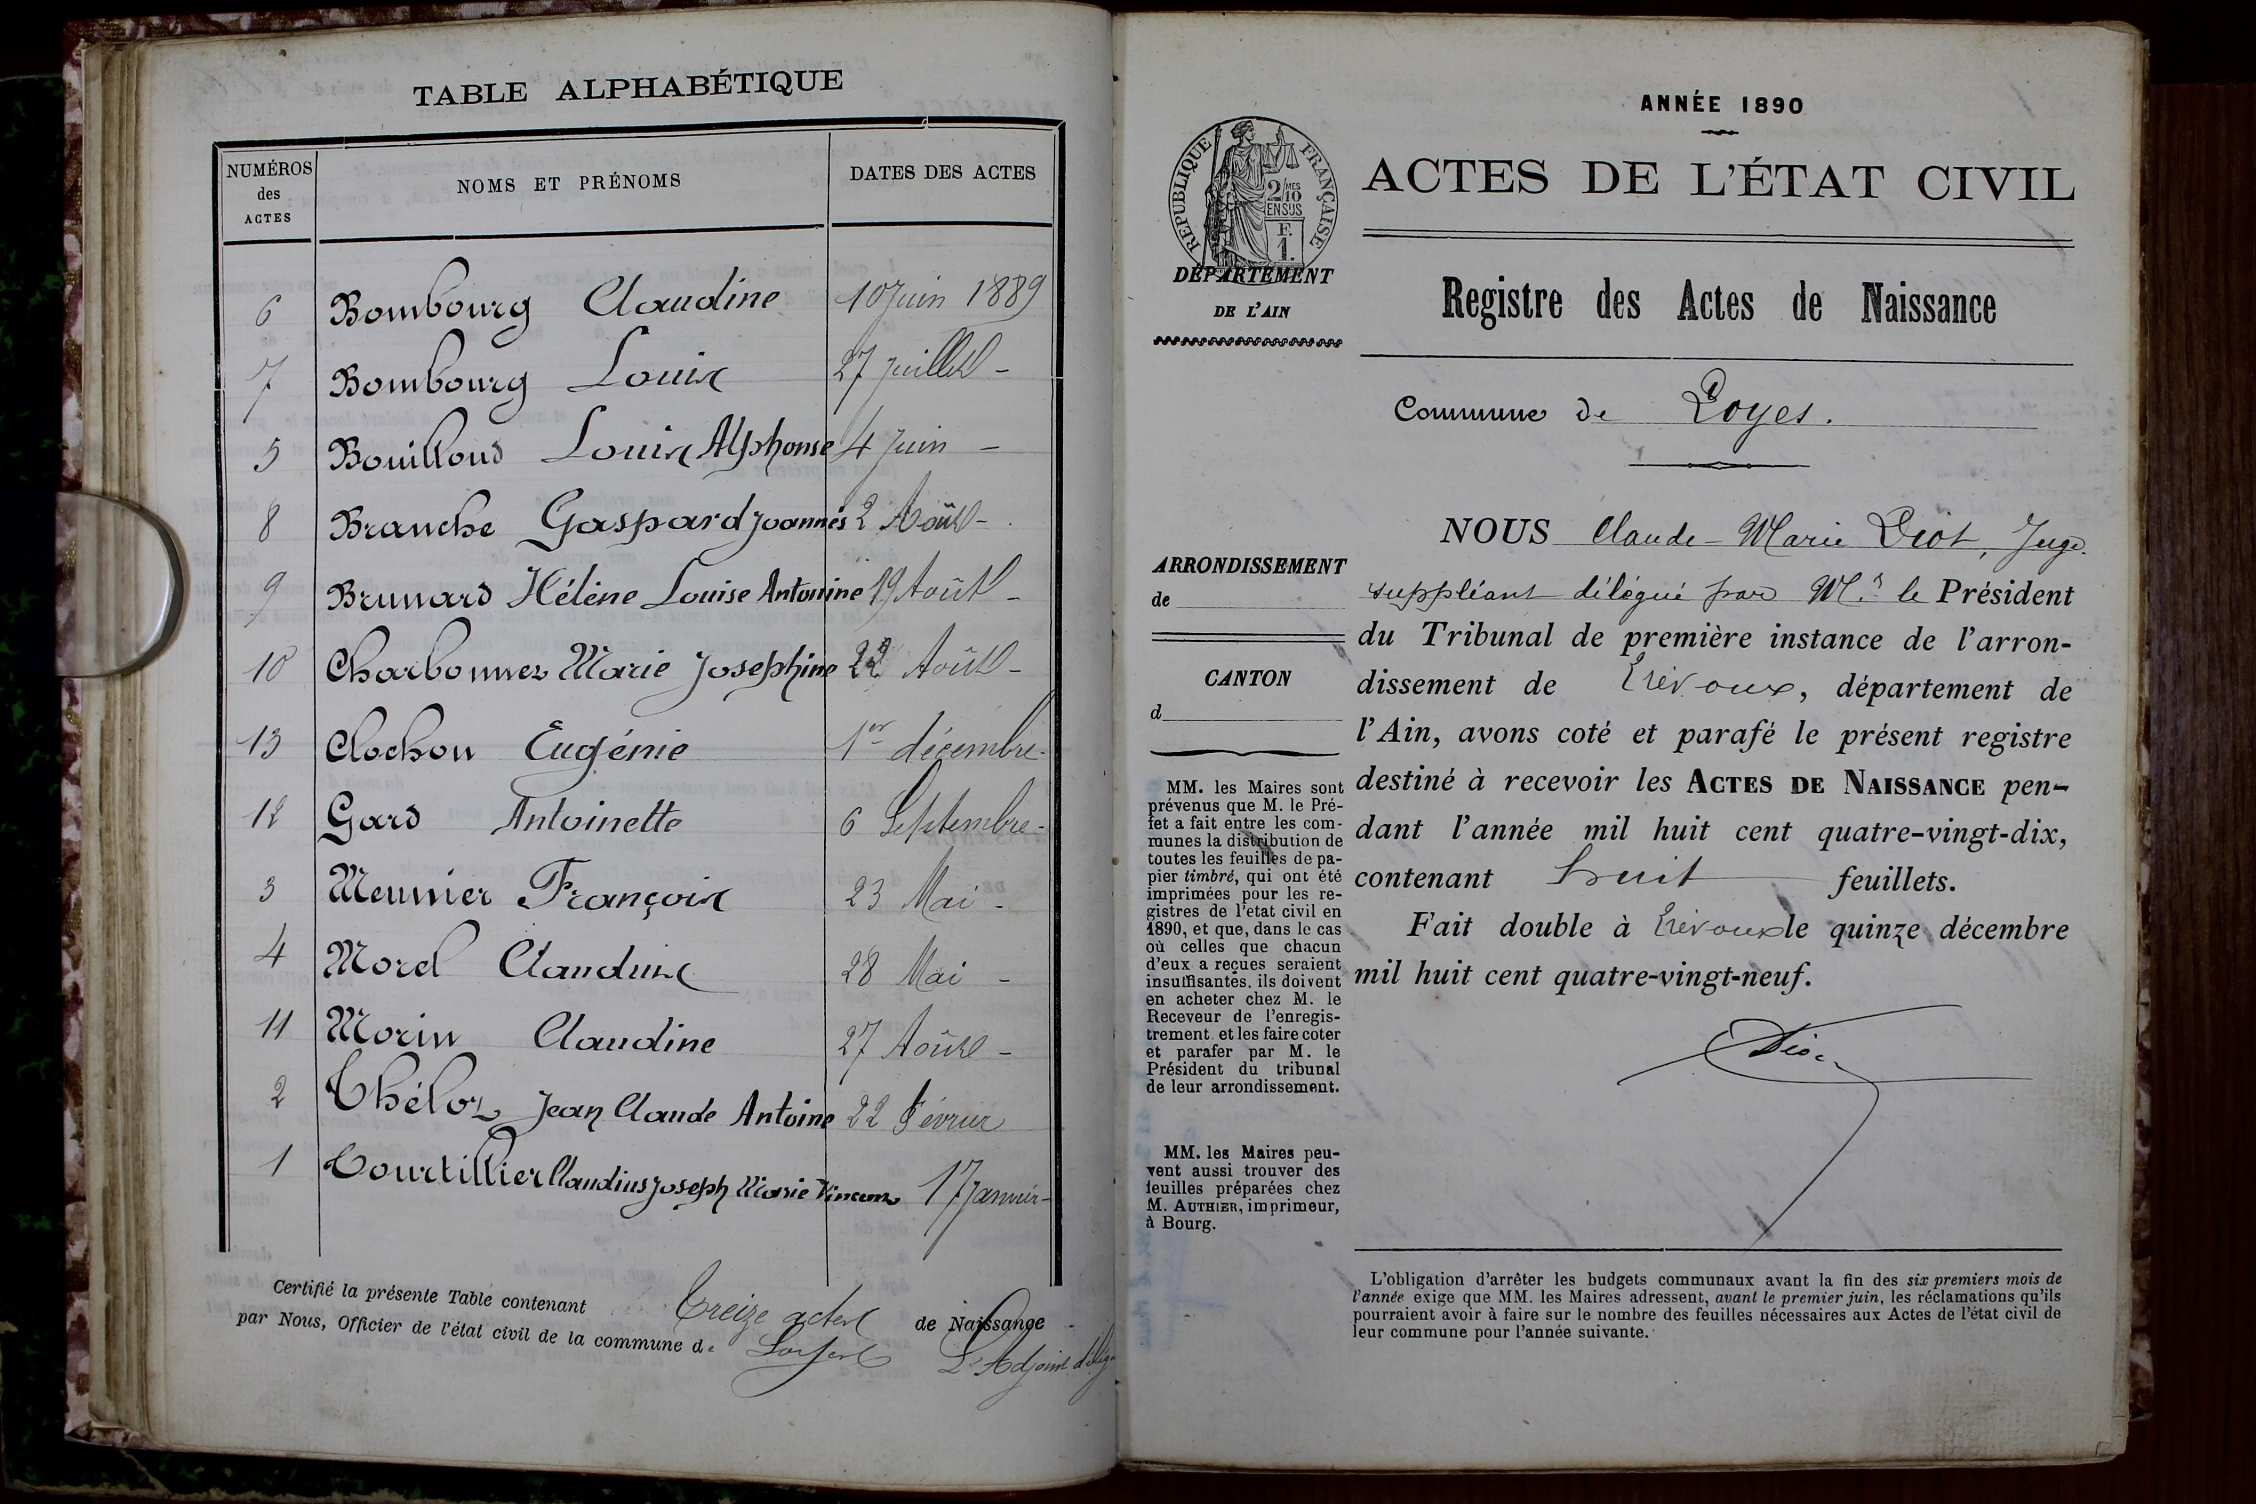 TABLE ALPHABÉTIQUE
NUMÉROS des ACTES NOMS ET PRÉNOMS DATES DES ACTES
6 Bombourg Claudine 10 Juin 1889
7 Bombourg Louis 27 Juillet -
5 Bouilloud Louis Alphonse 4 Juin -
8 Branche Gaspard Joannès 2 Août -
9 Brunard Hélène Louise Antonine 19 Août -
10 Charbonnet Marie Joséphine 22 Août -
13 Clochon Eugénie 1er décembre -
12 Gard Antoinette 6 Septembre -
3 Meunier François 23 Mai -
4 Morel Claudius 28 Mai -
11 Morin Claudine 27 Août -
2 Théloz Jean Claude Antoine 22 Février
1 Tourtillier Claudius Joseph Marie Vincent 17 Janvier -
Certifié la présente Table contenant Treize actes de Naissance
par Nous, Officier de l'état civil de la commune de Loyes L'Adjoint délég
ANNÉE 1890
RÉPUBLIQUE FRANÇAISE
2/10 MES
EN SUS
F.
1.
ACTES DE L'ÉTAT CIVIL
DÉPARTEMENT
DE L'AIN
Registre des Actes de Naissance
Commune de Loyes.
ARRONDISSEMENT
de
CANTON
d
MM. les Maires sont
prévenus que M. le Pré-
fet a fait entre les com-
munes la distribution de
toutes les feuilles de pa-
pier timbré, qui ont été
imprimées pour les re-
gistres de l'etat civil en
1890, et que, dans le cas
où celles que chacun
d'eux a reçues seraient
insuffisantes, ils doivent
en acheter chez M. le
Receveur de l'enregis-
trement et les faire coter
et parafer par M. le
Président du tribunal
de leur arrondissement.
MM. les Maires peu-
vent aussi trouver des
feuilles préparées chez
M. AUTHIER, imprimeur,
à Bourg.
NOUS Claude-Marie Diot, Juge
suppléant délégué par Mr. le Président
du Tribunal de première instance de l'arron-
dissement de Trévoux, département de
l'Ain, avons coté et parafé le présent registre
destiné à recevoir les ACTES DE NAISSANCE pen-
dant l'année mil huit cent quatre-vingt-dix,
contenant huit feuillets.
Fait double à Trévoux le quinze décembre
mil huit cent quatre-vingt-neuf.
Diot
L'obligation d'arrêter les budgets communaux avant la fin des six premiers mois de
l'année exige que MM. les Maires adressent, avant le premier juin, les réclamations qu'ils
pourraient avoir à faire sur le nombre des feuilles nécessaires aux Actes de l'état civil de
leur commune pour l'année suivante.